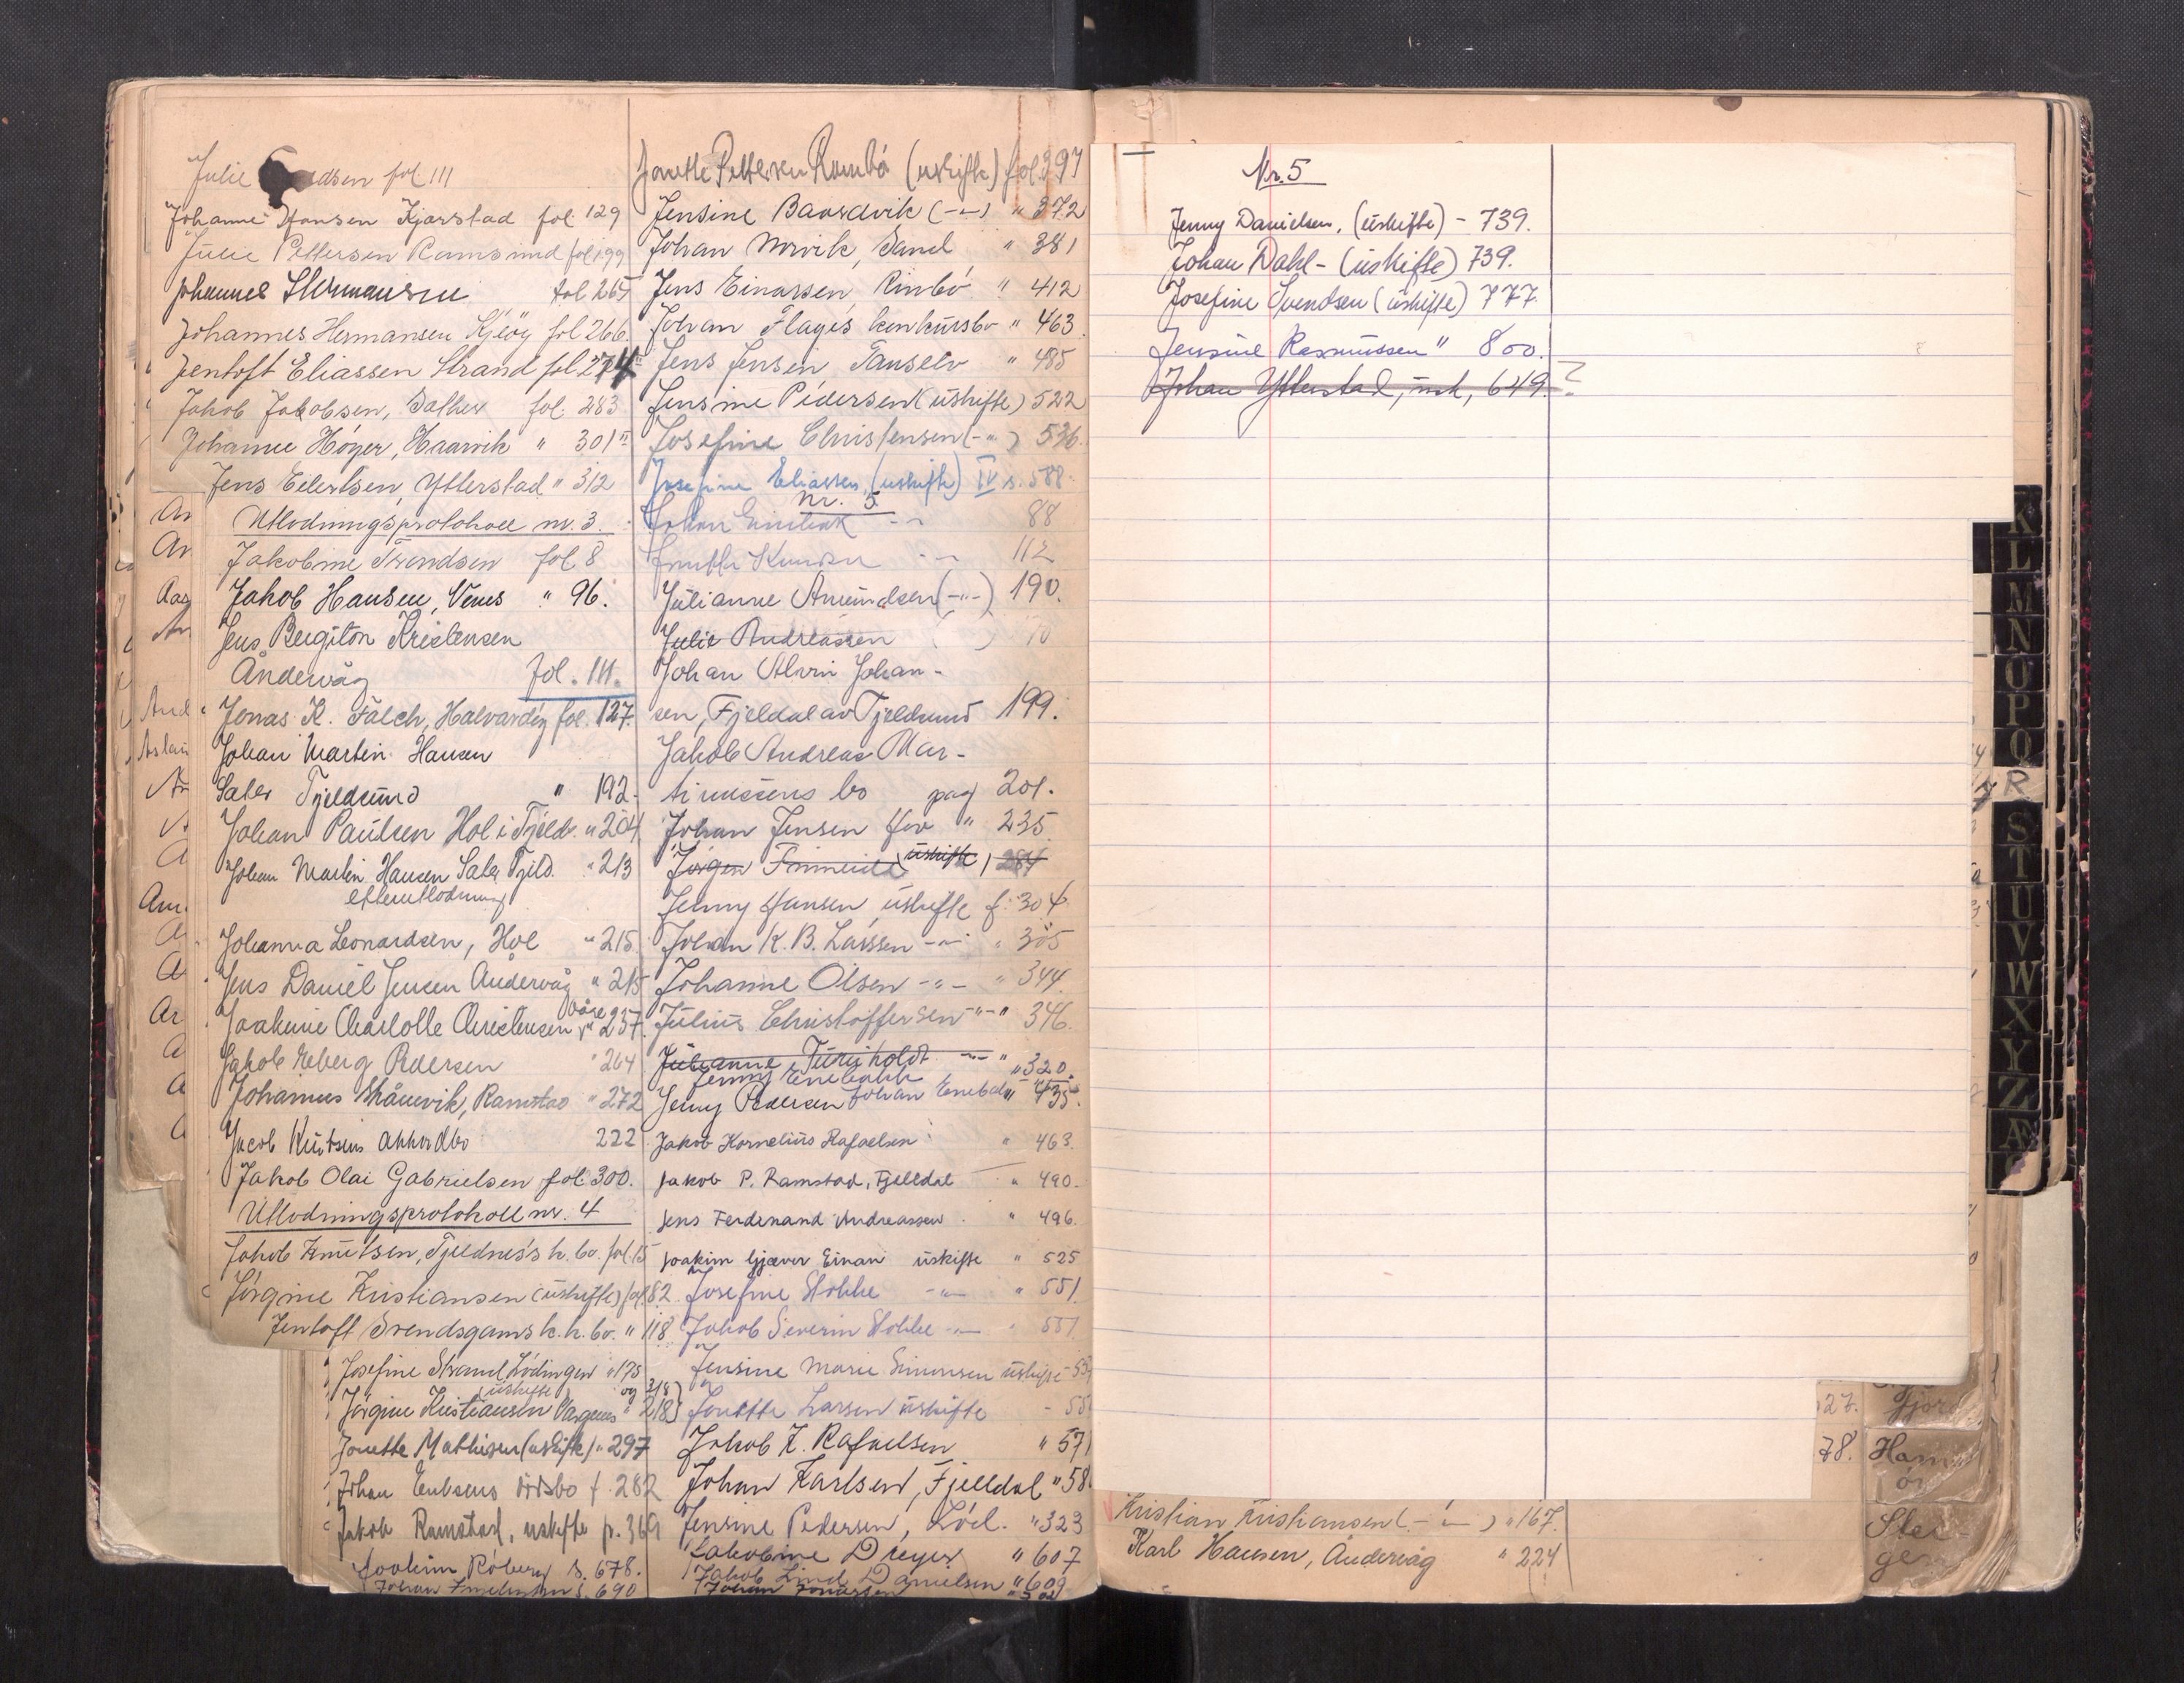 Julie dsen fol 111
Johanne Hansen Kjørstad fol. 129
Julie Pettersen Ramsund fol 199
Johannes Hermansen fol 265
Johannes Hermansen Kjeöy fol 266
Jentoft Eliassen Strand fol 274
Jakob Jakobsen, Sather fol. 283
Johanne Höyer, Haarvik " 301
Jens Eilertsen, Ytterstad " 312
Utlodningsprotokoll nr. 3.
Jakobine Svendsen fol 8
Jakob Hansen, Venes " 96.
Jens Bergiton Kristensen
Åndervåg fol. 111.
Jonas K. Falch, Halvardöy fol. 127.
Johan Martin Hansen
Saler Tjeldsund " 192.
Johan Paulsen Hol i Tjeld. " 204
Johan Martin Hansen Saler Tjeld. " 213
efterutlodning
Johanna Leonardsen, Hol " 215
Jens Daniel Jensen Andervåg " 215
Joakime Charlotte Christensen " 257.
Jakob Eeberg Pedersen " 264
Johannes Skånevik, Ramstad " 272
Jacob Knutsens akkordbo 222
Jakob Olai Gabrielsen fol. 300.
Utlodningsprotokoll nr. 4
Jakob Knutsen, Tjeldnes's k. bo. fol. 15
Jörgine Kristiansen (uskifte) fol 82
Jentoft Svendsgams k. k. bo. " 118
Josefine Strand Lödingen " 175
(uskifte) og 318
Jörgine Kristiansen Vargenes " 218
Jonette Mathisen (uskifte) " 297
Johan Eriksens dödsbo f. 282
Jakob Ramstad, uskifte p. 369
Joakim Roberg s. 678.
s. 690
Jonette Pettersen Rambö (uskifte) fol. 297
Jensine Baardvik (-"-) " 372
Johan Norvik, Sand " 381
Jens Einarsen, Rinbö " 412
Johan Flages konkursbo " 463
Jens Jensen Tanselv " 485
Jensine Pedersen (uskifte) 522
Josefine Christensen (-"-) 536.
Josefine Eliassen, (uskifte) IV s. 588.
Nr. 5
Johan 88
112
Julianne Amundsen (-"-) 190.
Julie Andreassen ( ) 70
Johan Alvin Johan-
sen, Fjeldal av Tjeldsund 199.
Jakob Andreas Mar-
tinussens bo pag 201.
Johan Jensen Hov " 235
Jörgen uskifte) 284
Jenny Hansen uskifte f. 304
Johan K. B. Larssen -"- " 305
Johanne Olsen -"- " 344
Julius Christoffersen -"- " 346.
Julianne Turiholdt -"- " 320.
Jenny Enebakk
Jenny Pedersen Johan Enebakk " 435.
Jakob Kornelius Rafaelsen " 463.
Jakob P. Ramstad, Fjelldal " 490.
Jens Ferdinand Andreassen " 496.
Joakim Gjæver Einan uskifte " 525
Josefine Stokke -"- " 551.
Jakob Severin Stokke -"- " 551
Jensine Marie Simonsen uskifte - 55
Jonette Larsen uskifte - 55
Jakob K. Rafaelsen " 571
Johan Karlsen, Fjelldal " 58
Jensine Pedersen, Löd. " 323
Jakobine Dreyer " 607
Jakob Lind Danielsen " 609
Johan Jonassen
Nr. 5
Jenny Danielsen, (uskifte) - 739.
Johan Dahl - (uskifte) 739.
Josefine Svendsen (uskifte) 777.
Jensine Rasmussen " 800.
Johan Ytterstad, usk, 649. ?
Kristian Kristiansen (-"-) " 167.
Karl Hansen, Åndervåg " 224
27.
78.
fjord
Ham
ör
Stei
gen
K
L
M
N
O
P
Q
R
S
T
U
V
W
X
Y
Z
Æ
Ø